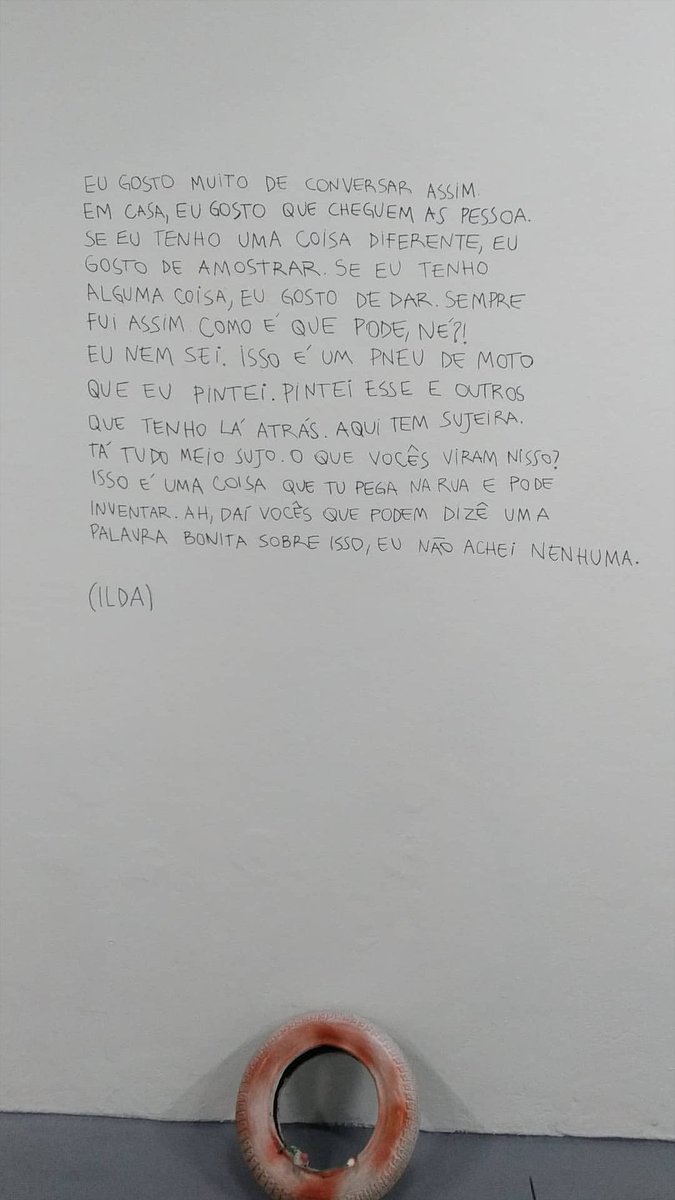 EU GOSTO MUITO DE CONVERSAR ASSIM.
EM CASA, EU GOSTO QUE CHEGUEM AS PESSOA.
SE EU TENHO UMA COISA DIFERENTE, EU
GOSTO DE AMOSTRAR. SE EU TENHO
ALGUMA COISA, EU GOSTO DE DAR. SEMPRE
FUI ASSIM. COMO É QUE PODE, NÉ?!
EU NEM SEI. ISSO É UM PNEU DE MOTO
QUE EU PINTEI. PINTEI ESSE E OUTROS
QUE TENHO LÁ ATRÁS. AQUI TEM SUJEIRA.
TÁ TUDO MEIO SUJO. O QUE VOCÊS VIRAM NISSO?
ISSO É UMA COISA QUE TU PEGA NA RUA E PODE
INVENTAR. AH, DAÍ VOCÊS QUE PODEM DIZÊ UMA
PALAVRA BONITA SOBRE ISSO, EU NÃO ACHEI NENHUMA.
(ILDA)